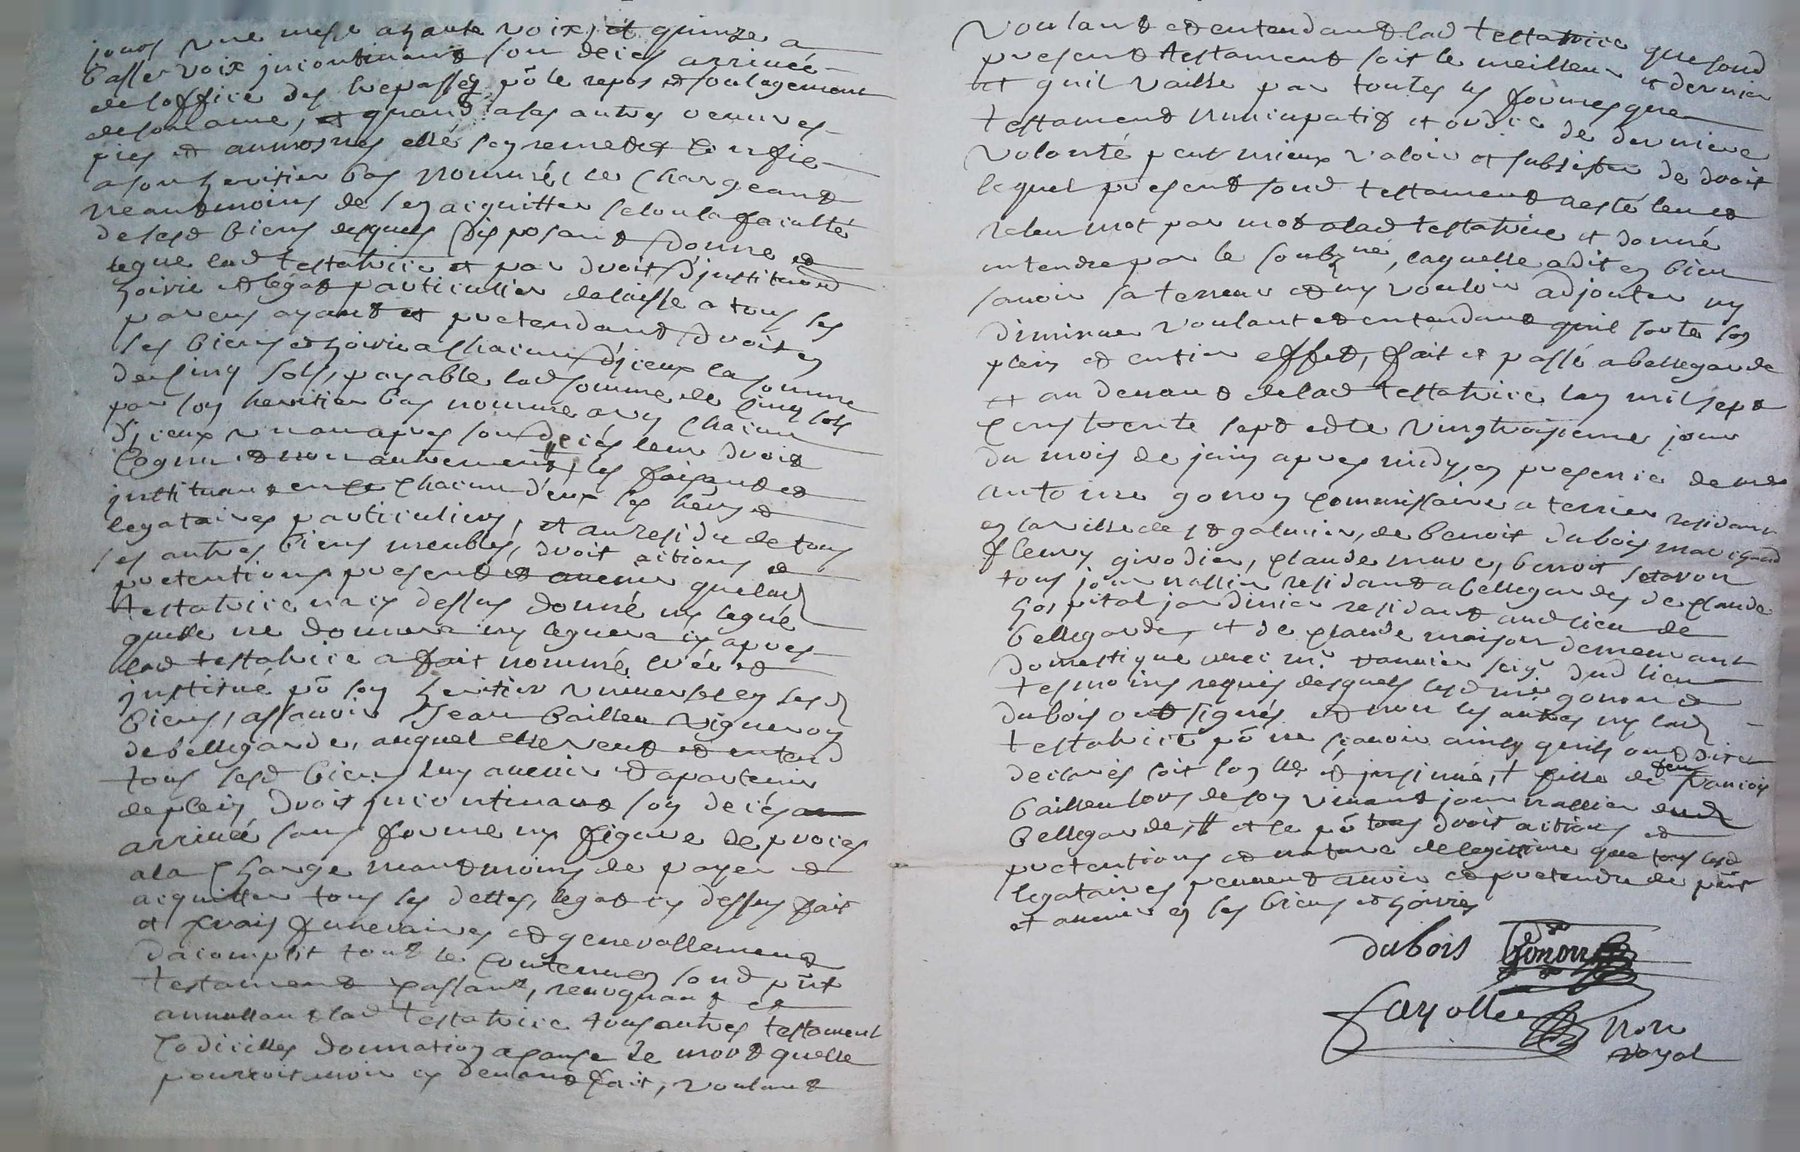 jours une messe a haute voix, et quinze a
basse voix incontinant son deces arrivée
de loffice des trepassez po le repos et soulagement
de son ame, et quand a ses autres oeuvres
pies et aumosnes elle sen remet et confie
a son heritier bas nommé, le chargeant
neantmoins de sen acquitter selon la faculté
de sesd biens desquels disposant donne et
legue lad testatrice et par droit dinstitution
hoirie et legat particulier delaisse a tous ses
parens ayant et pretendant droit en
ses biens et hoirie a chacun diceux la somme
de cinq sols, payable lad somme de cinq sols
par son heritier bas nommé a un chacun
diceux un an apres son deces leur droit
cognu et non autrement, les faisant et
instituant en ce chacun deux ses hers et
legataires particuliers, et au residu de tous
ses autres biens meubles, droit actions et
pretentions present et avenir que lad
testatrice na cy dessus donné ny legué
quelle ne donnera ny leguera cy apres
lad testatrice a fait nommé, créé et
institué po son heritier universel en sesd
biens, assavoir Jean bailleu vigneron
de bellegarde, auquel elle veut et entend
tous sesd biens luy avenir et apartenir
de plein droit incontinant son deces
arrivée sans forme ny figure de proces
a la charge neantmoins de payer et
acquitter tous ses dettes, legat cy dessus fait
et frais funeraires et generallement
dacomplir tout le contenu en sond pnt
testament cassant, revoquant et
annullant lad testatrice tous autres testament
codicilles donnation a cause de mort quelle
pourroit avoir cy devant fait, voulant
voulant et entendant lad testatrice que sond
present testament soit le meilleur et dernier
et quil vaille par toutes les formes que
testament nuncupatif et ordre de derniere
volonté peut mieux valoir et subsister de droit
lequel present sond testament a esté leu et
releu mot par mot a lad testatrice et donné
entendre par le soubzné, laquelle a dit en bien
savoir sa teneur et ny vouloir adjouter ny
diminuer voulant et entendant quil sorte son
plein et entier effet, fait et passé a bellegarde
et au devant de lad testatrice lan mil sept
cens trente sept et le vingtroisieme jour
du mois de juin apres midy, en presence de me
antoine gonon commissaire a terrier residant
en la ville de st galmier, de benoit dubois marechal
fleury girodier, claude mure, benoit
tous journallier residant a bellegarde, de claude
hospital jardinier residant aud lieu de
bellegarde, et de claude maison demeurant
domestique avec mr seigr dud lieu
tesmoins requis desquels lesd me gonon et
dubois ont signés et non les autres ny lad
testatrice po ne scavoir ainsy quils ont dit et
declarés soit et insinué, + fille de feu françois
bailleu lors de son vivant journallier aud
bellegarde, # et ce po tous droit actions et
pretentions et nature de legitime que tous lesd
legataires peuvent avoir et pretendre de pnt
et avenir en ses biens et hoiries
dubois Gonon
fayolle
non
royal